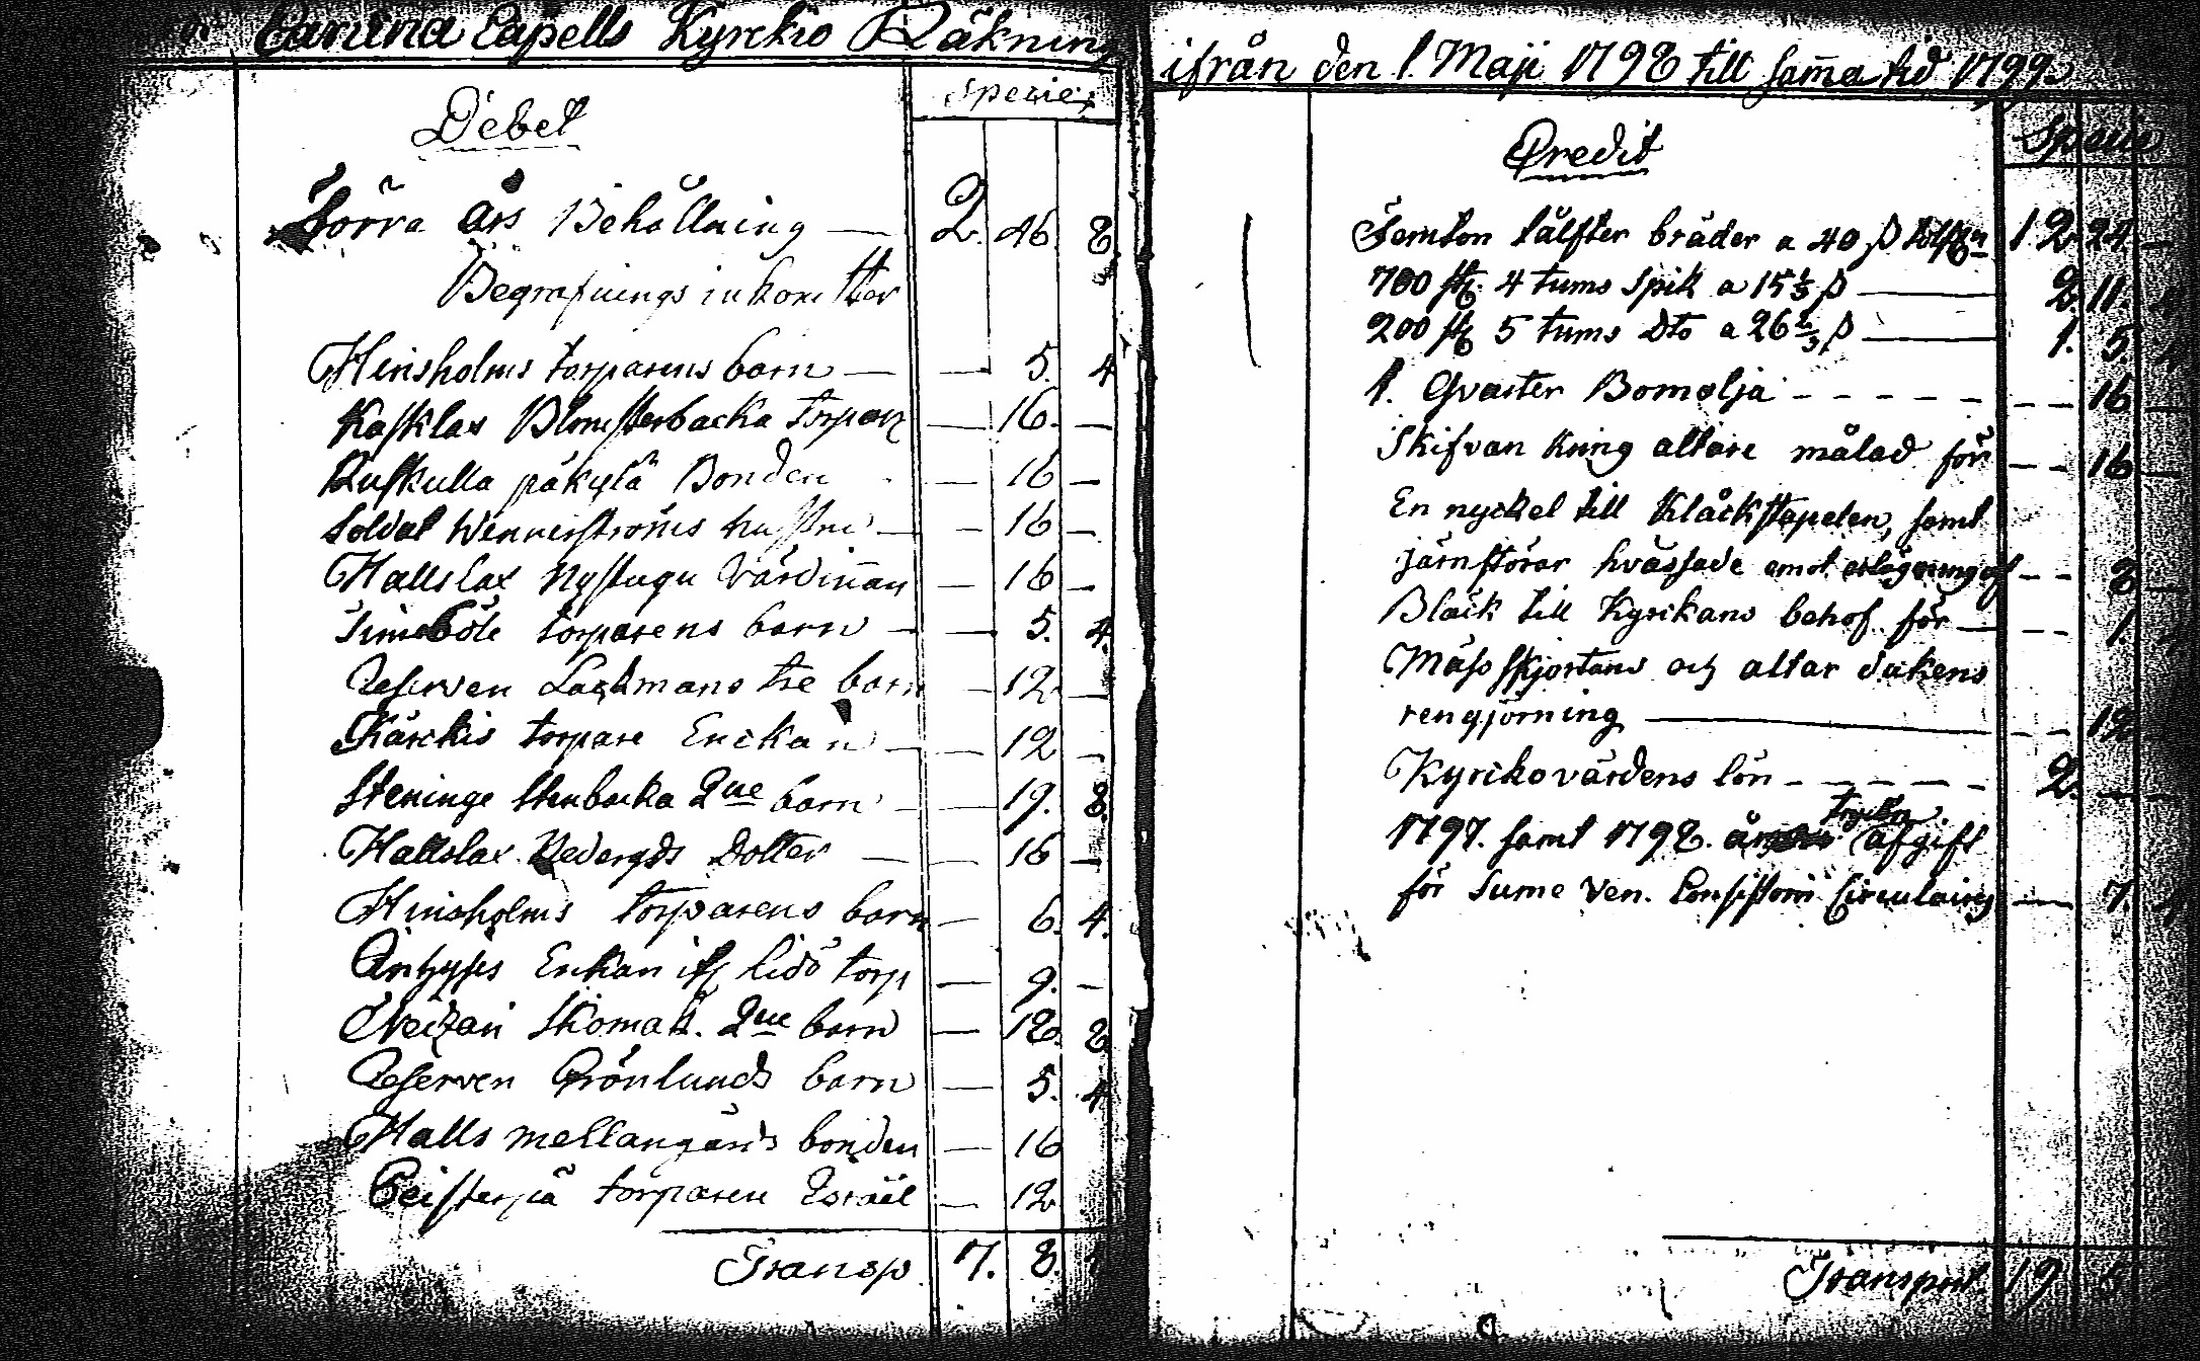 Canina Capells Kyrckio Räkning
Debet
Specie
Förra års Behållning — 2. 46 8
Begrafnings inkomster
Hirsholms torparens barn — — 5. 4
Kasklax Blomsterbacka torpare — 16. —
Päkylä Bonden — 16 —
Soldat Wennerströms hustru — — 16 —
Hallslax Nystugu Värdinnan — 16 —
Simeböle torparens barn — — 5. 4.
Reserven Lackmans tre barn — 12 —
Kärckis torpare Enckan — — 12 —
Steninge Stenbacka 2ne barn — — 19. 8.
Hallslax Dotter — — 16 —
Hinsholms torparens barn — 6. 4.
Enkan ifr. Lidö torp — 9. —
Skomak. 2ne barn — 12. 8
Reserven Grönlunds barn — 5. 4
Halls mellangårds bonden — 16
torparen Israel — 12
Transp. 7. 8.
ifrån den 1. Maji 1798 till samma tid 1799.
Credit
Specie
Femton tålfter bräder a 40 ß tolften 12 24 —
700 st. 4 tums Spik a 15 1/3 ß — 2 11.
200 st. 5 tums Dto a 26 2/3 ß — 1. 5.
1. Qvarter Bomolja - - - - - - — 16 —
Skifvan kring altare målad för — — 16 —
En nyckel till Klåckstapelen, samt
järnstörar hvässade emot erläggning af - - 8
Bläck till Kyrkans behof för — - - 1.
Mässskjortans och altar dukens
rengjörning — - - 12
Kyrckovärdens lön - - - - - 2. —
1797. samt 1798. tryckn. afgift
för Sume Ven. Consistorii Circulairer — 7.
Transport 19